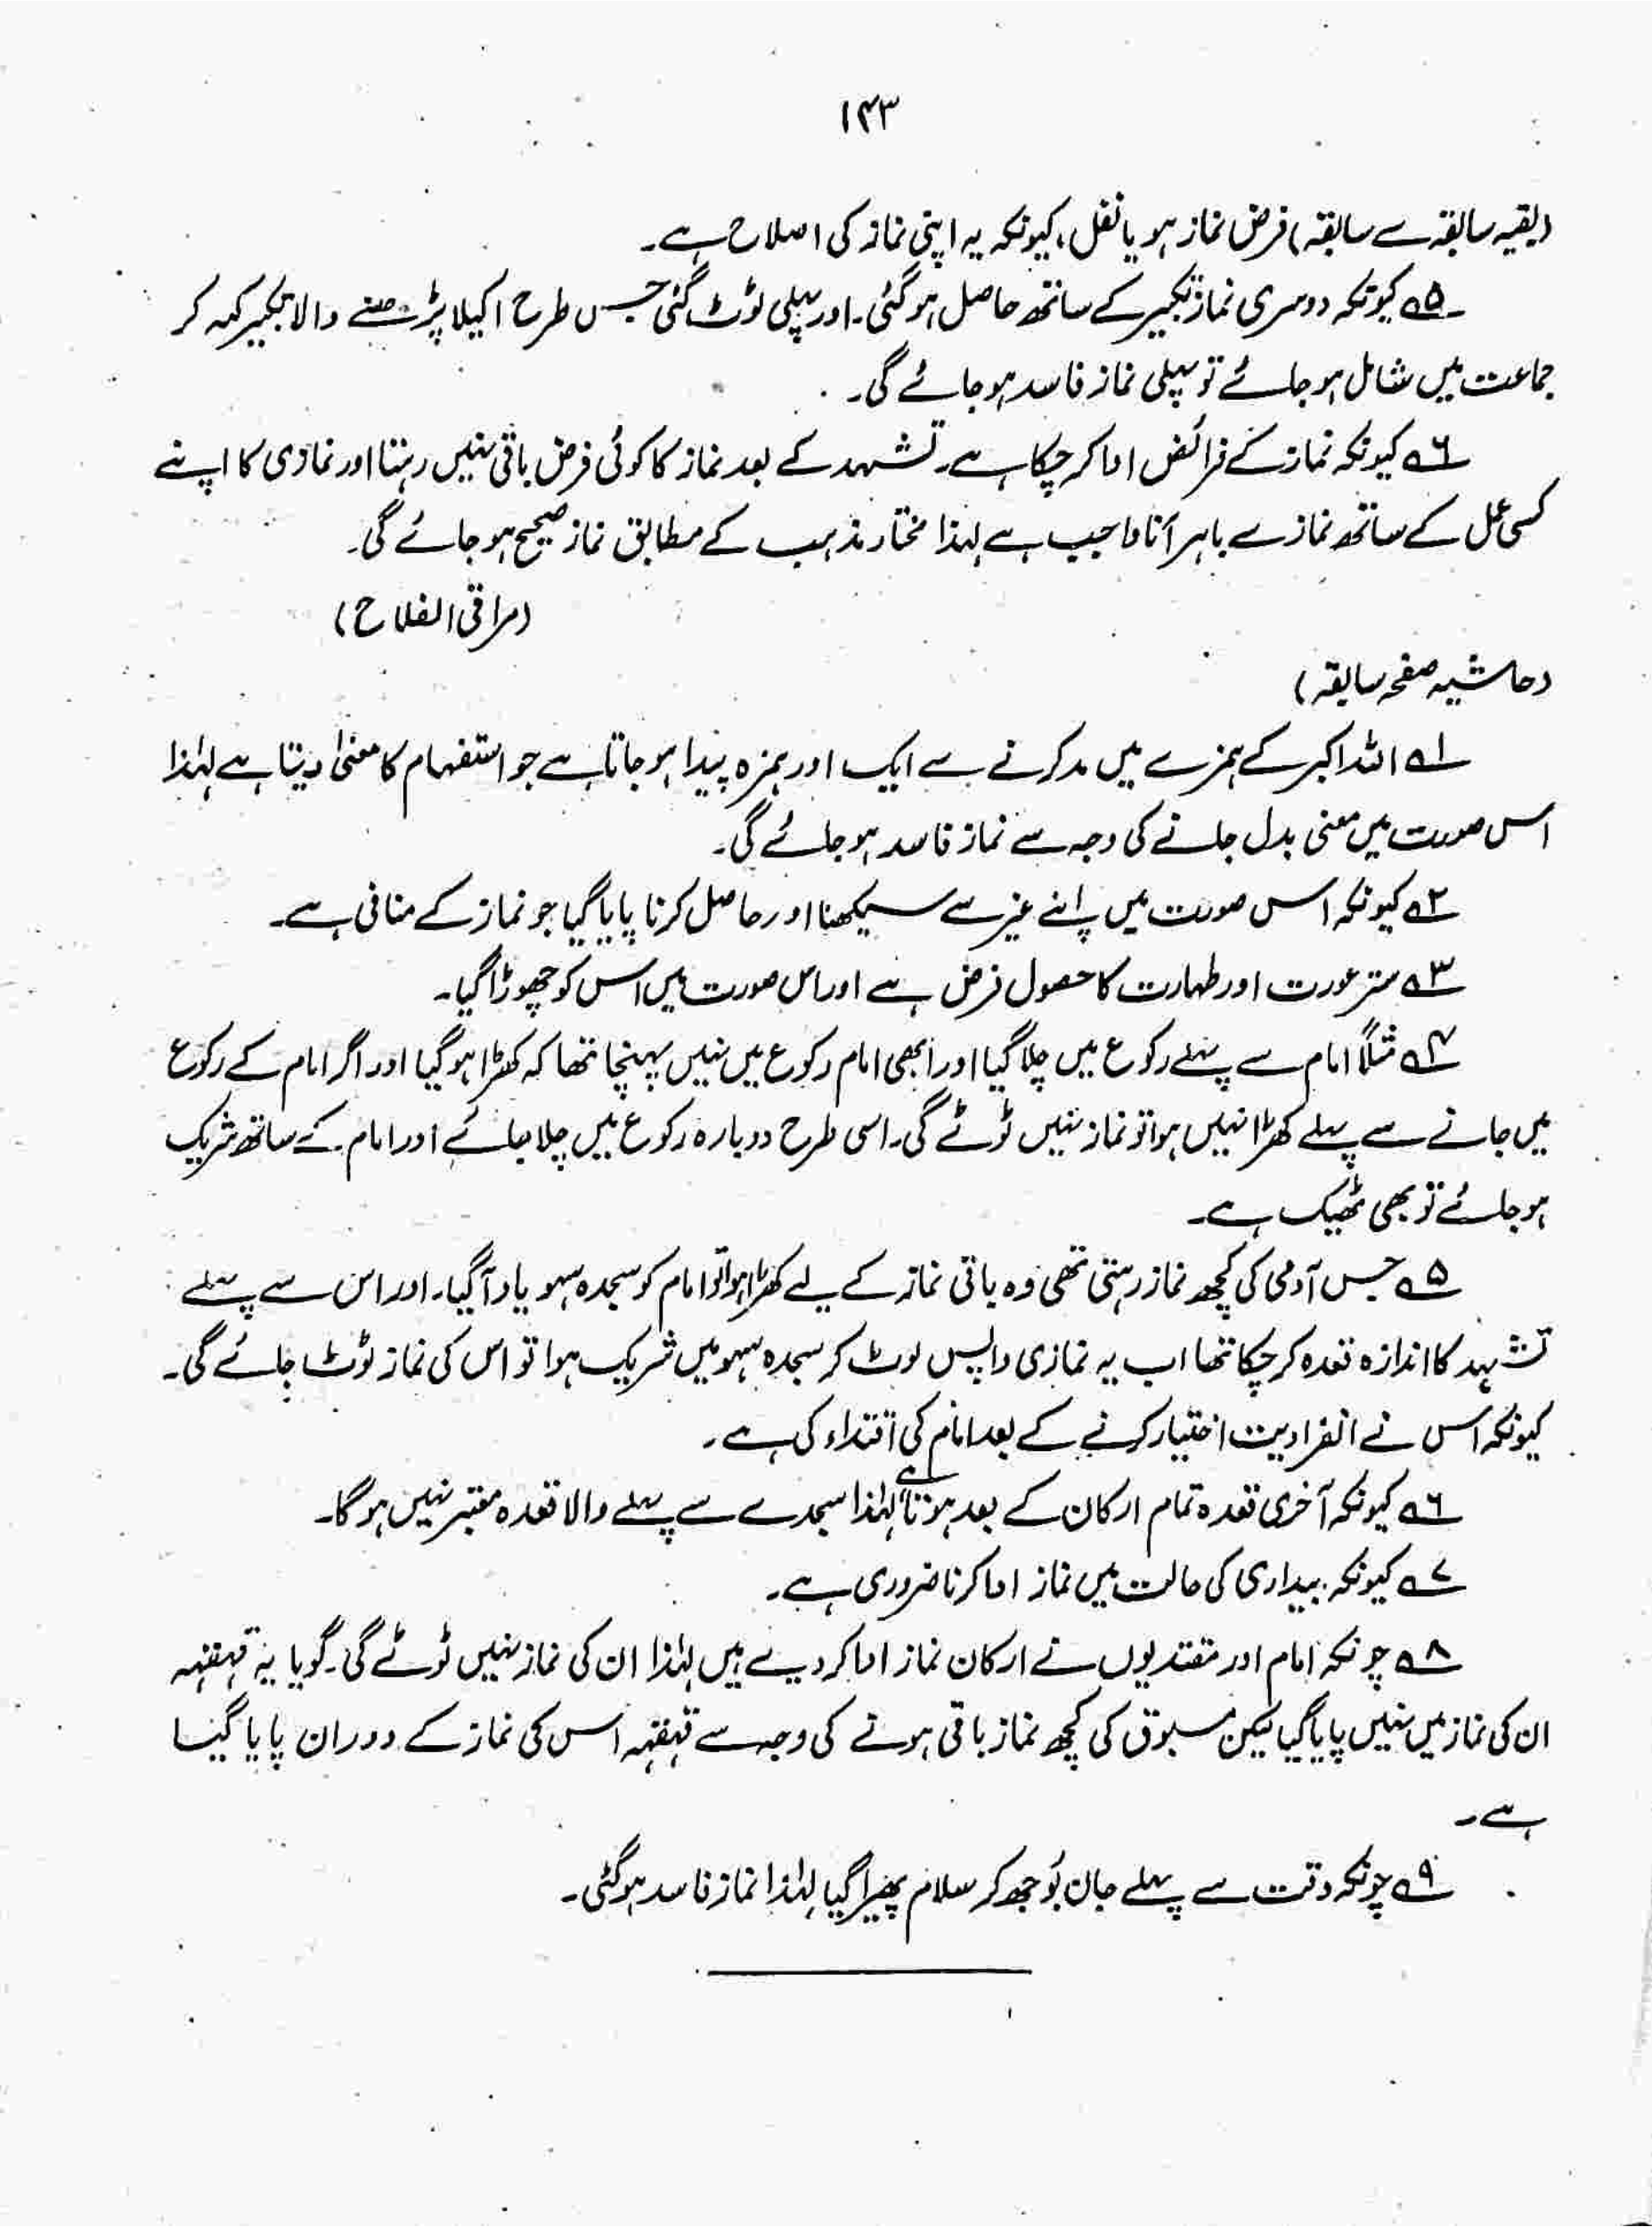 ۱۴۳
(بقیہ سابقہ سے سابقہ) فرض نماز ہو یا نفل، کیونکہ یہ اپنی نماز کی اصلاح ہے۔
۵؎ کیونکہ دوسری نماز تکبیر کے ساتھ حاصل ہو گئی۔ اور پہلی ٹوٹ گئی جس طرح اکیلا پڑھنے والا تکبیر کہہ کر
جماعت میں شامل ہو جائے تو پہلی نماز فاسد ہو جائے گی۔
۶؎ کیونکہ نماز کے فرائض ادا کر چکا ہے۔ تشہد کے بعد نماز کا کوئی فرض باقی نہیں رہتا اور نمازی کا اپنے
کسی عمل کے ساتھ نماز سے باہر آنا واجب ہے لہذا مختار مذہب کے مطابق نماز صحیح ہو جائے گی۔
(مراقی الفلاح)
(حاشیہ صفحہ سابقہ)
۱؎ اللہ اکبر کے ہمزے میں مد کرنے سے ایک اور ہمزہ پیدا ہو جاتا ہے جو استفہام کا معنیٰ دیتا ہے لہٰذا
اس صورت میں معنی بدل جانے کی وجہ سے نماز فاسد ہو جائے گی۔
۲؎ کیونکہ اس صورت میں اپنے غیر سے سیکھنا اور حاصل کرنا پایا گیا جو نماز کے منافی ہے۔
۳؎ ستر عورت اور طہارت کا حصول فرض ہے اور اس صورت میں اس کو چھوڑا گیا۔
۴؎ مثلاً امام سے پہلے رکوع میں چلا گیا اور ابھی امام رکوع میں نہیں پہنچا تھا کہ کھڑا ہو گیا اور اگر امام کے رکوع
میں جانے سے پہلے کھڑا نہیں ہوا تو نماز نہیں ٹوٹے گی۔ اسی طرح دوبارہ رکوع میں چلا جائے اور امام کے ساتھ شریک
ہو جائے تو بھی ٹھیک ہے۔
۵؎ جس آدمی کی کچھ نماز رہتی تھی وہ باقی نماز کے لیے کھڑا ہوا تو امام کو سجدہ سہو یاد آگیا۔ اور اس سے پہلے
تشہد کا اندازہ قعدہ کر چکا تھا اب یہ نمازی واپس لوٹ کر سجدہ سہو میں شریک ہوا تو اس کی نماز ٹوٹ جائے گی۔
کیونکہ اس نے انفرادیت اختیار کرنے کے بعد امام کی اقتداء کی ہے۔
۶؎ کیونکہ آخری قعدہ تمام ارکان کے بعد ہوتا ہے لہٰذا سجدے سے پہلے والا قعدہ معتبر نہیں ہوگا۔
۷؎ کیونکہ بیداری کی حالت میں نماز ادا کرنا ضروری ہے۔
۸؎ چونکہ امام اور مقتدیوں نے ارکان نماز ادا کر دیے ہیں لہٰذا ان کی نماز نہیں ٹوٹے گی۔ گویا یہ قہقہہ
ان کی نماز میں نہیں پایا گیا لیکن مسبوق کی کچھ نماز باقی ہونے کی وجہ سے قہقہہ اس کی نماز کے دوران پایا گیا
ہے۔
۹؎ چونکہ وقت سے پہلے جان بُوجھ کر سلام پھیرا گیا لہٰذا نماز فاسد ہو گئی۔